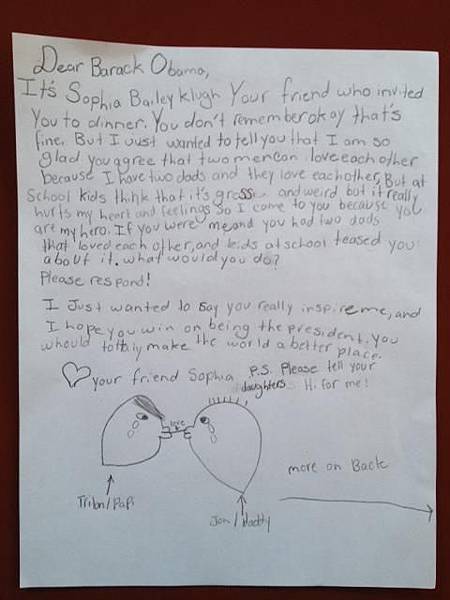 Dear Barack Obama,
It's Sophia Bailey Klugh Your friend who invited
You to dinner. You don't remember okay that's
fine. But I Just wanted to tell you that I am so
glad you agree that two men can love each other
because I have two dads and they love each other, But at
School kids think that it's gross and weird but it really
hurts my heart and feelings So I come to you because you
are my hero. If you were me and you had two dads
that loved each other, and kids at school teased you
about it. what would you do?
Please respond!
I Just wanted to say you really inspire me, and
I hope you win on being the president. You
whould tottaly make the world a better place.
your friend Sophia
P.S. Please tell your
daughters Hi for me!
love
more on Back
/ Papi
Jon / daddy